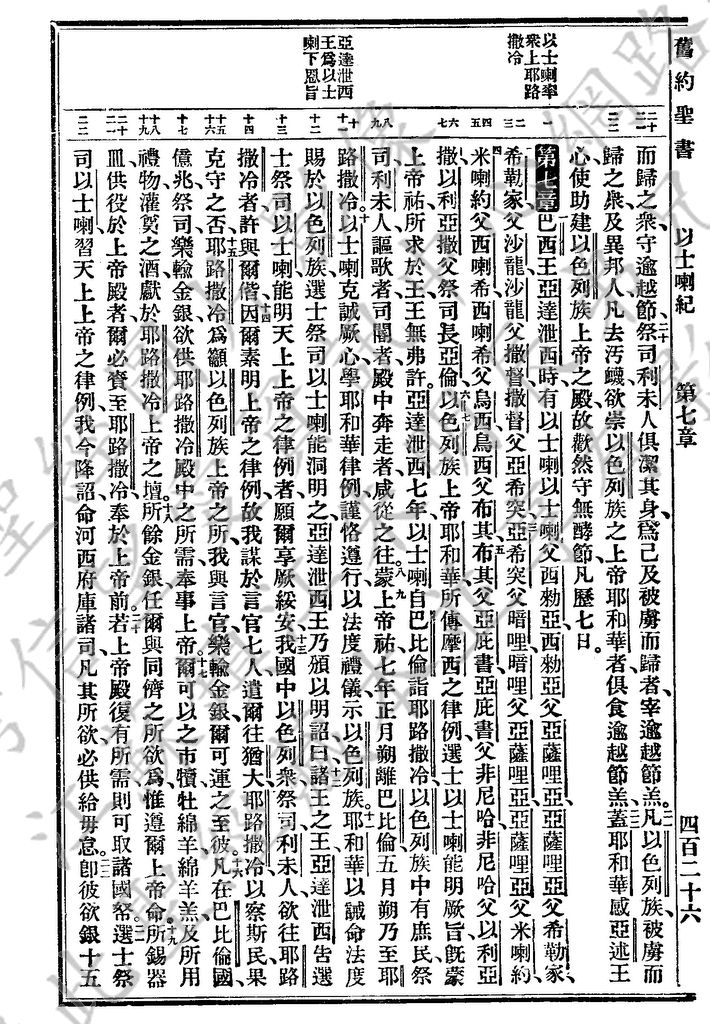 舊約聖書 以士喇紀 第七章 四百二十六
以士喇率
衆上耶路
撒冷
亞達泄西
王爲以士
喇下恩旨
而歸之衆守逾越節祭司利未人俱潔其身爲己及被虜而歸者宰逾越節羔凡以色列族被虜而
歸之衆及異邦人凡去汚衊欲崇以色列族之上帝耶和華者俱食逾越節羔蓋耶和華感亞述王
心使助建以色列族上帝之殿故歡然守無酵節凡歷七日
第七章 巴西王亞達泄西時有以士喇以士喇父西勑亞西勑亞父亞薩哩亞亞薩哩亞父希勒家
希勒家父沙龍沙龍父撒督撒督父亞希突亞希突父暗哩暗哩父亞薩哩亞亞薩哩亞父米喇約
米喇約父西喇希西喇希父烏西烏西父布其布其父亞庇書亞庇書父非尼哈非尼哈父以利亞
撒以利亞撒父祭司長亞倫以色列族上帝耶和華所傳摩西之律例選士以士喇能明厥旨旣蒙
上帝祐所求於王王無弗許亞達泄西七年以士喇自巴比倫詣耶路撒冷以色列族中有庶民祭
司利未人謳歌者司閽者殿中奔走者咸從之往蒙上帝祐七年正月朔離巴比倫五月朔乃至耶
路撒冷以士喇克誠厥心學耶和華律例謹恪遵行以法度禮儀示以色列族耶和華以誡命法度
賜於以色列族選士祭司以士喇能洞明之亞達泄西王乃頒以明詔曰諸王之王亞達泄西告選
士祭司以士喇能明天上上帝之律例者願爾享厥綏安我國中以色列衆祭司利未人欲往耶路
撒冷者許與爾偕因爾素明上帝之律例故我謀於言官七人遣爾往猶大耶路撒冷以察斯民果
克守之否耶路撒冷爲籲以色列族上帝之所我與言官樂輸金銀爾可運之至彼凡在巴比倫國
億兆祭司樂輸金銀欲供耶路撒冷殿中之所需奉事上帝爾可以之市犢牡綿羊綿羊羔及所用
禮物灌奠之酒獻於耶路撒冷上帝之壇所餘金銀任爾與同儕之所欲爲惟遵爾上帝命所錫器
皿供役於上帝殿者爾必賫至耶路撒冷奉於上帝前若上帝殿復有所需則可取諸國帑選士祭
司以士喇習天上上帝之律例我今降詔命河西府庫諸司凡其所欲必供給毋怠卽彼欲銀十五